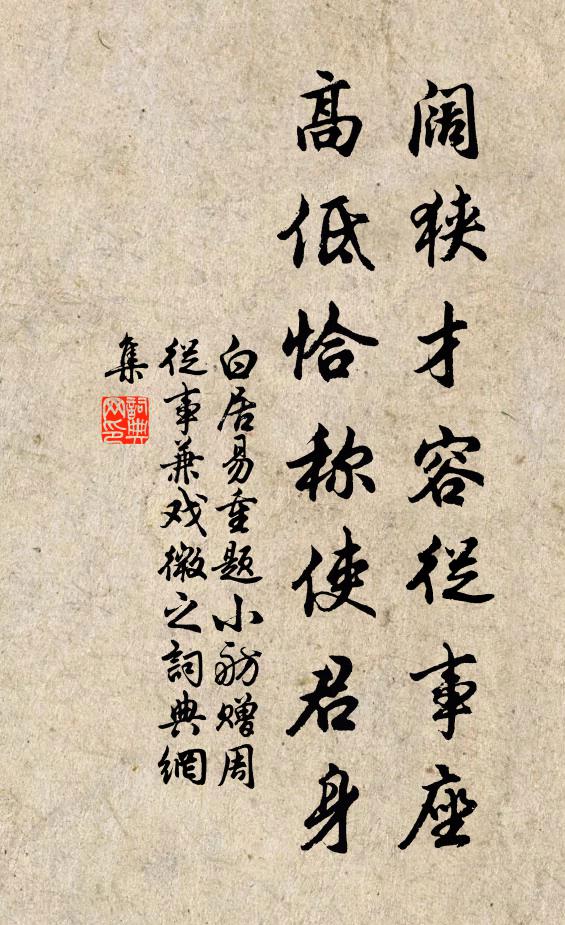 阔狭才容從事座
高低恰称使君身
白居易重题小舫赠周
從事兼戏微之詞典網
集
詞典
网印